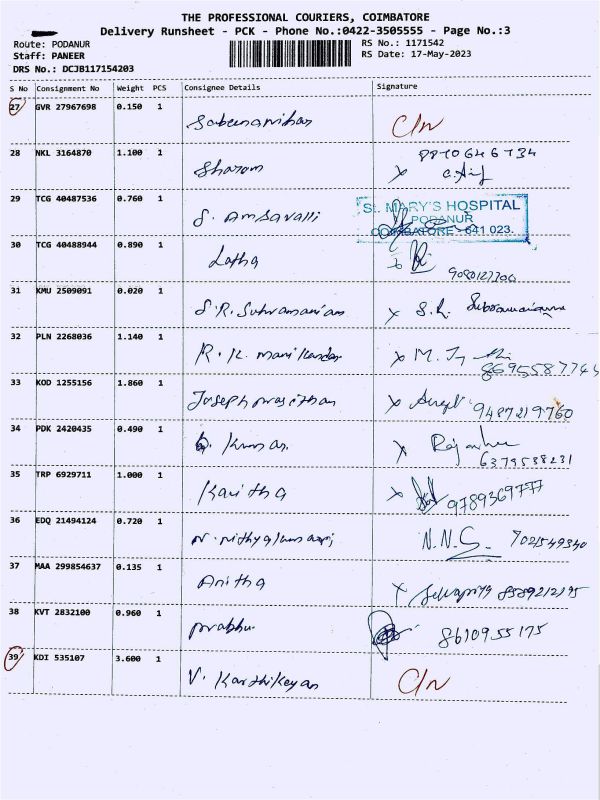 THE PROFESSIONAL COURIERS, COIMBATORE
Delivery Runsheet - PCK - Phone No.:0422-3505555 - Page No.:3
Route: PODANUR
RS No.: 1171542
Staff: PANEER
RS Date: 17-May-2023
DRS No.: DCJB117154203
S No Consignment No Weight PCS Consignee Details Signature
27 GVR 27967698 0.150 1
C/N
28 NKL 3164870 1.100 1 Sharom
29 TCG 40487536 0.760 1 S. Amsavalli
St. MARY'S HOSPITAL
PODANUR
COIMBATORE - 641 023.
30 TCG 40488944 0.890 1 Latha
31 KMU 2509091 0.020 1 S.R. Subramaniam X S.R.
32 PLN 2268036 1.140 1 R. K. Manikandan X
33 KOD 1255156 1.860 1 Joseph X
9487219760
34 PDK 2420435 0.490 1 Kumar. X
6379538231
35 TRP 6929711 1.000 1 Kavitha X
9789369777
36 EDQ 21494124 0.720 1 N.N.S.
37 MAA 299854637 0.135 1 Anitha X
38 KVT 2832100 0.960 1 Prabhu
8610955175
39 KDI 535107 3.600 1 V. Karthikeyan C/N